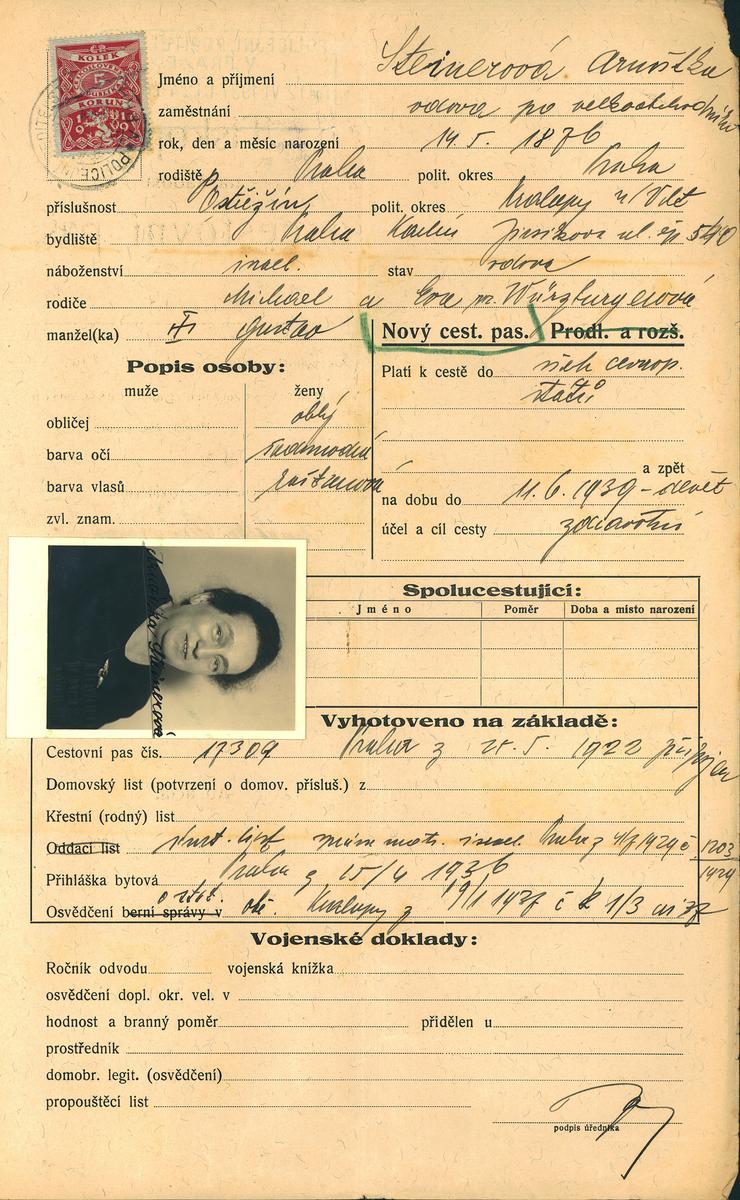 KOLEK
5
KORUN
1919
Jméno a příjmení Steinerová Arnoštka
zaměstnání vdova po velkoobchodníku
rok, den a měsíc narození 14. 5. 1876
rodiště Praha polit. okres Praha
příslušnost polit. okres Kralupy n/Vlt
bydliště Praha Karlín ul. čp. 540
náboženství israel. stav vdova
rodiče Michael a Eva r. Würzburgerová
manžel(ka) Gustav
Nový cest. pas. Prodl. a rozš.
Popis osoby:
muže ženy
Platí k cestě do všech evrop.
států
obličej oblý
barva očí
barva vlasů kaštanová
zvl. znam.
a zpět
na dobu do 11. 6. 1939 -
účel a cíl cesty zdravotní
Arnoštka Steinerová
Spolucestující:
Jméno Poměr Doba a místo narození
Vyhotoveno na základě:
Cestovní pas čís. 17309 Praha z 1922
Domovský list (potvrzení o domov. přísluš.) z
Křestní (rodný) list
Oddací list israel. Praha 1203
1929
Přihláška bytová Praha 15/4 1936
Osvědčení berní správy v Kralupy z
Vojenské doklady:
Ročník odvodu vojenská knížka
osvědčení dopl. okr. vel. v
hodnost a branný poměr přidělen u
prostředník
domobr. legit. (osvědčení)
propouštěcí list
podpis úředníka